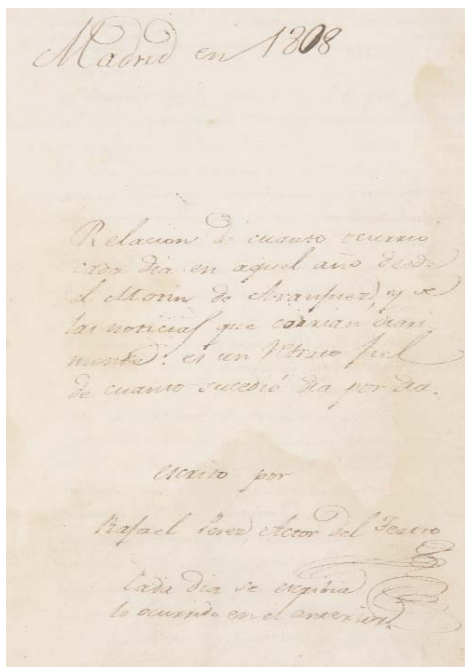 Madrid en 1808
Relacion de cuanto ocurrió
cada dia en aquel año desde
el Motin de Aranjuez, y de
las noticias que corrian diaria-
mente: es un retrato fiel
de cuanto sucedió dia por dia.
escrito por
Rafael Perez Actor del Teatro
Cada dia se escribia
lo ocurrido en el anterior.